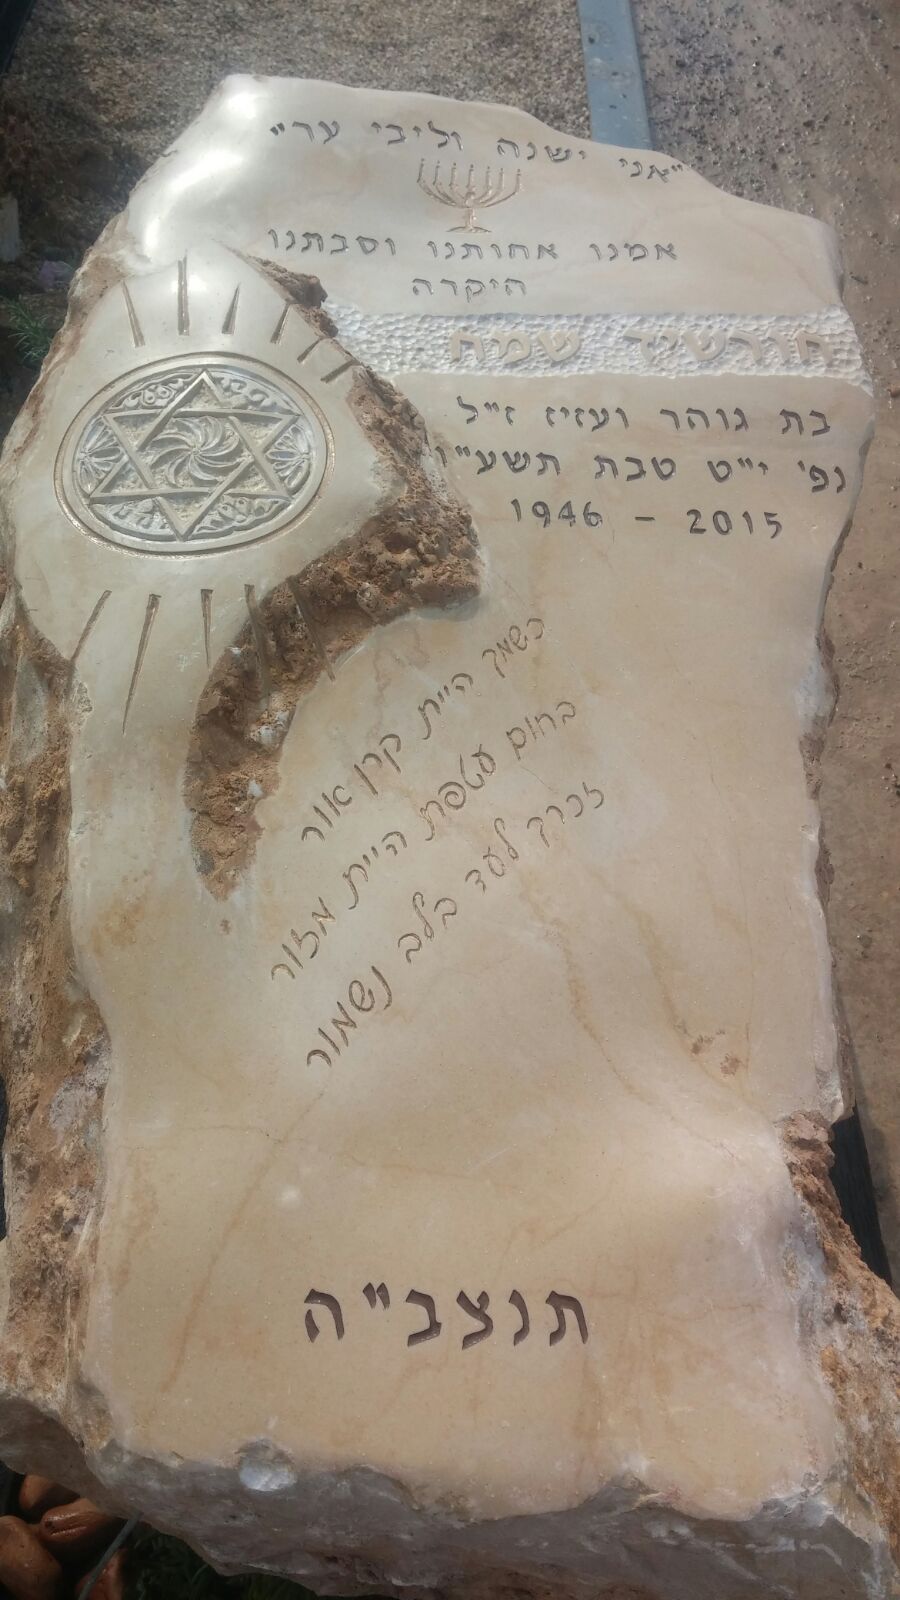 "אני ישנה וליבי ער"
אמנו אחותנו וסבתנו
היקרה
חורשיד שמח
בת גוהר ועזיז ז"ל
נפ' י"ט טבת תשע"ו
1946 - 2015
כשמך היית קרן אור
בחום עטפת היית מזור
זכרך לעד בלב נשמור
תנצב"ה